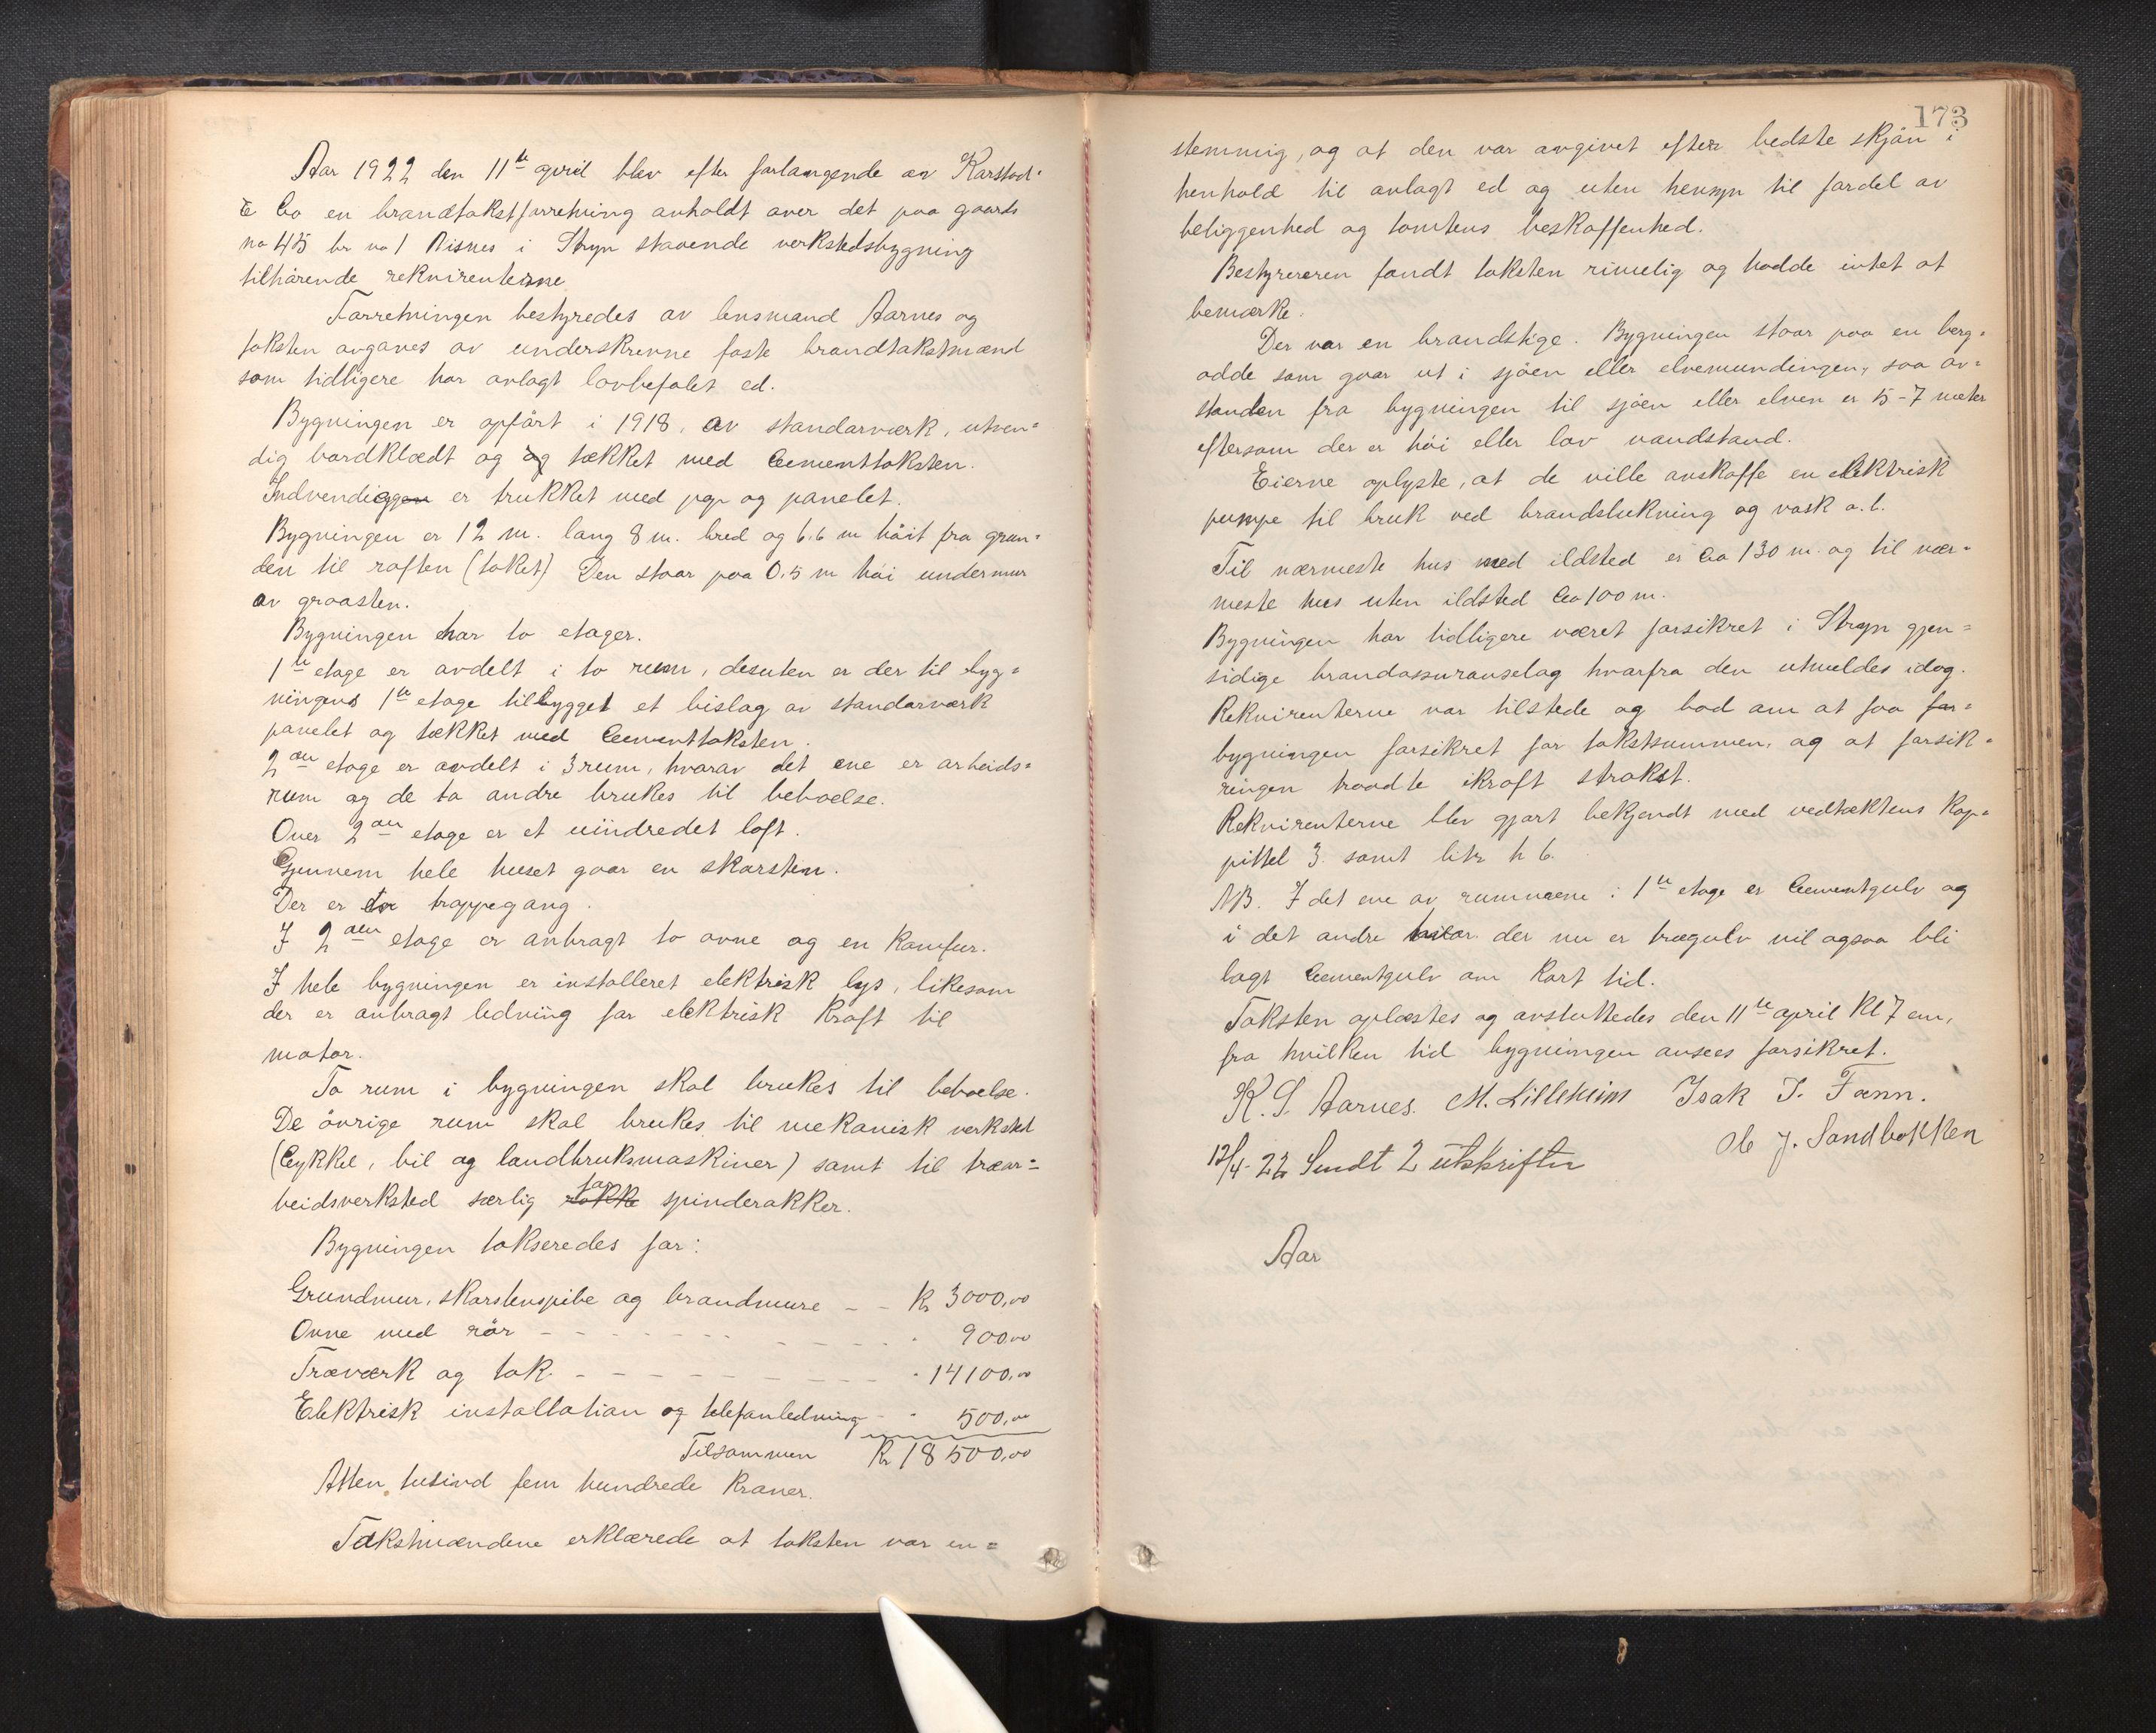 Aar 1922 den 11te april blev efter forlangende av Karstad
& Co en brandtakstforretning avholdt over det paa gaards
no 45 br no 1 Visnes i Stryn staaende verkstedsbygning
tilhörende rekvirenterne
Forretningen bestyredes av lensmand Aarnes og
taksten avgaves av underskrevne faste brandtakstmænd
som tidligere har avlagt lovbefalet ed.
Bygningen er opfört i 1918, av standarværk, utven=
dig bordklædt og og tækket med Cementtaksten.
Indvendiggen er trukket med pap og panelet.
Bygningen er 12 m. lang 8 m. bred og 6.6 m höit fra grun=
den til raften (taket) Den staar paa 0.5 m höi undermur
av graasten.
Bygningen har to etager.
1te etage er avdelt i to rum, desuten er der til byg=
ningens 1te etage tilbygget et bislag av standarværk
panelet og tækket med Cementtaksten.
2den etage er avdelt i 3 rum, hvorav det ene er arbeids=
rum og de to andre brukes til beboelse.
Over 2den etage er et uindredet loft.
Gjennem hele huset gaar en skorsten.
Der er en trappegang.
I 2den etage er anbragt to ovne og en komfur.
I hele bygningen er installeret elektrisk lys, likesom
der er anbragt ledning for elektrisk kraft til
motor.
To rum i bygningen skal brukes til beboelse.
De övrige rum skal brukes til mekanisk verksted
(Cykkel, bil og landbruksmaskiner) samt til træar=
beidsverksted særlig rokke for spinderokker.
Bygningen takseredes for:
Grundmur, skorstenspibe og brandmure - - Kr 3000,00
Ovne med rör - - - 900,00
Træværk og tak - - - 14100,00
Elektrisk installation og telefonledning - 500,00
Tilsammen Kr 18500,00
Atten tusind fem hundrede Kroner.
Takstmændene erklærede at taksten var en=
173
stemmig, og at den var avgivet efter bedste skjön i
henhold til avlagt ed og uten hensyn til fordel av
beliggenhed og tomtens beskaffenhed.
Bestyreren fandt taksten rimelig og hadde intet at
bemærke.
Der var en brandstige. Bygningen staar paa en berg=
odde som gaar ut i sjöen eller elvemundingen, saa av=
standen fra bygningen til sjöen eller elven er 5-7 meter
eftersom der er höi eller lav vandstand.
Eierne oplyste, at de ville anskaffe en elektrisk
pumpe til bruk ved brandslukning og vask o.l.
Til nærmeste hus med ildsted er Ca 130 m. og til nær=
meste hus uten ildsted Ca 100 m.
Bygningen har tidligere været forsikret i Stryn gjen=
sidige brandassuranselag hvorfra den utmeldes idag.
Rekvirenterne var tilstede og bad om at faa for=
bygningen forsikret for takstsummen, og at forsik=
ringen traadte ikraft strakst.
Rekvirenterne blev gjort bekjendt med vedtæktens Kap=
pittel 3 samt litr h 6.
NB. I det ene av rummene i 1te etage er Cementgulv og
i det andre hvor der nu er trægulv vil ogsaa bli
lagt Cementgulv om kort tid.
Taksten oplæstes og avsluttedes den 11te april Kl 7 em,
fra hvilken tid bygningen ansees forsikret.
K. S. Aarnes. M. Lilleheim Isak I. Fænn.
Ole J. Sandbakken
12/4-22 Sendt 2 utskrifter
Aar